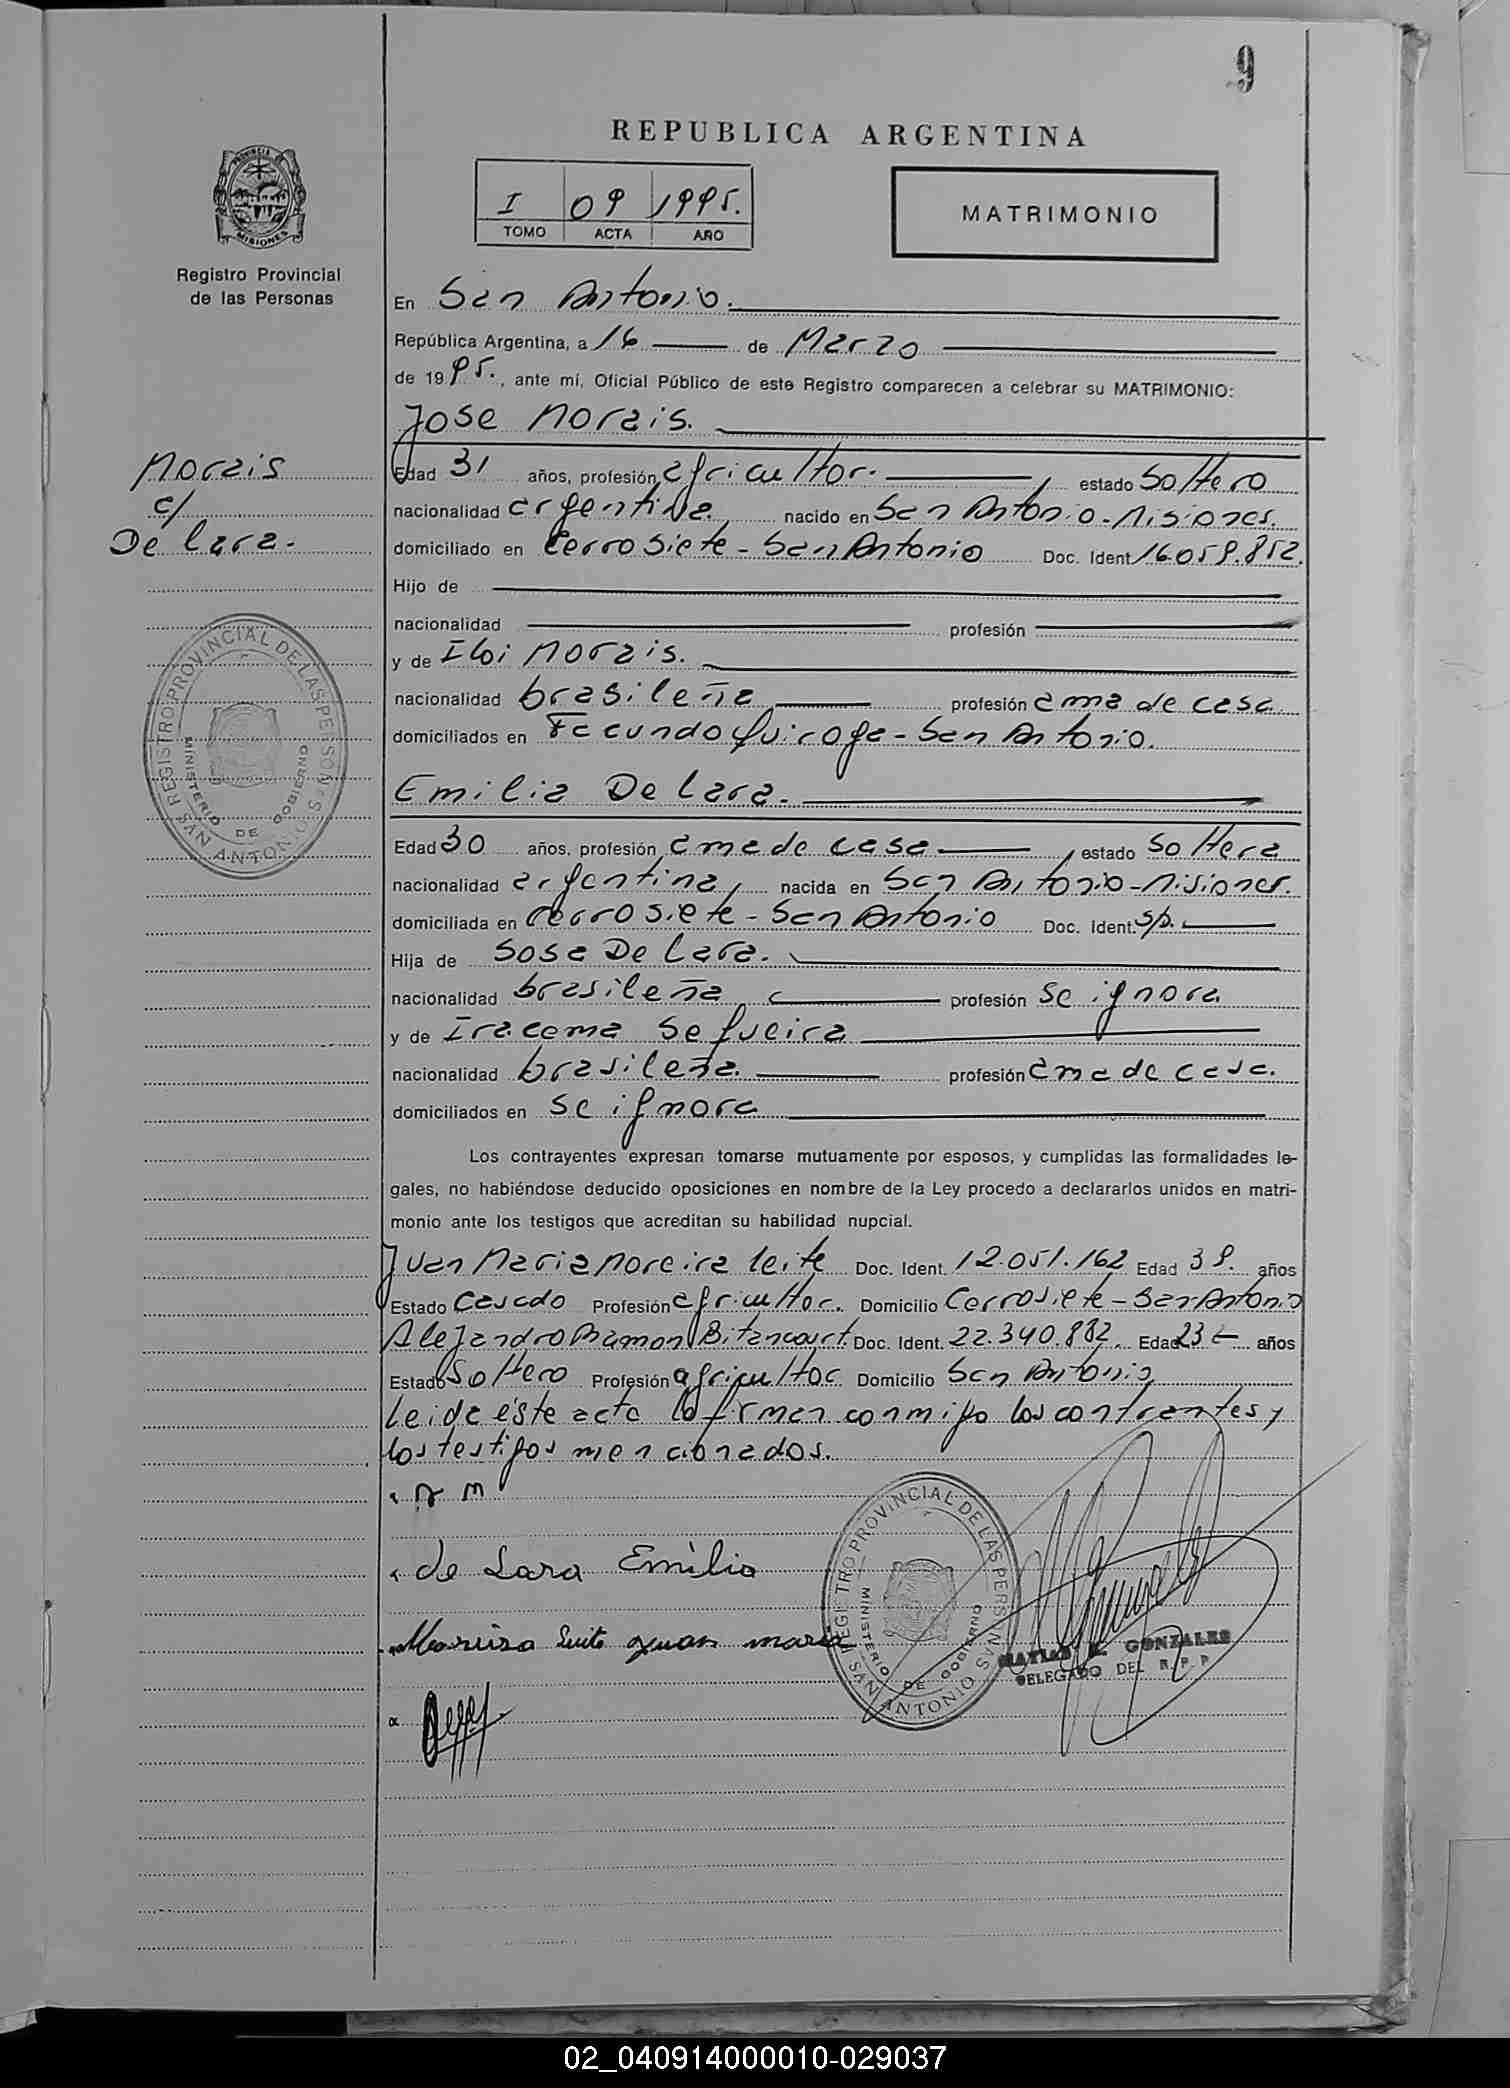 9
REPUBLICA ARGENTINA
PROVINCIA DE
MISIONES
I 09 1995.
TOMO ACTA AÑO
MATRIMONIO
Registro Provincial
de las Personas
En San Antonio.
República Argentina, a 16 de Marzo
de 1995., ante mí, Oficial Público de este Registro comparecen a celebrar su MATRIMONIO:
Jose Morais.
Morais
c/
De Lara.
Edad 31 años, profesión agricultor. estado Soltero
nacionalidad argentina nacido en San Antonio - Misiones.
domiciliado en Cerro Siete - San Antonio Doc. Ident. 16.059.852.
Hijo de
nacionalidad profesión
y de Iloi Morais.
nacionalidad brasileña profesión ama de casa
domiciliados en Facundo Quiroga - San Antonio.
Emilia De Lara.
Edad 30 años, profesión ama de casa estado Soltera
nacionalidad argentina, nacida en San Antonio - Misiones.
domiciliada en Cerro Siete - San Antonio Doc. Ident. S/D.
Hija de Sosa De Lara.
nacionalidad brasileña profesión se ignora
y de Iracema Sequeira
nacionalidad brasileña. profesión ama de casa.
domiciliados en se ignora
Los contrayentes expresan tomarse mutuamente por esposos, y cumplidas las formalidades le-
gales, no habiéndose deducido oposiciones en nombre de la Ley procedo a declararlos unidos en matri-
monio ante los testigos que acreditan su habilidad nupcial.
Juan Maria Moreira Leite Doc. Ident. 12.051.162 Edad 39. años
Estado Casado Profesión agricultor. Domicilio Cerro Siete - San Antonio
Alejandro Ramon Bitancourt. Doc. Ident. 22.340.882. Edad 23 años
Estado Soltero Profesión agricultor Domicilio San Antonio
Leida este acta la firman conmigo los contrantes y
los testigos mencionados.
de Lara Emilia
Leite Juan maria
REGISTRO PROVINCIAL DE LAS PERSONAS
MINISTERIO DE GOBIERNO
SAN ANTONIO
REGISTRO PROVINCIAL DE LAS PERSONAS
MINISTERIO DE GOBIERNO
SAN ANTONIO
GONZALES
DELEGADO DEL R.P.P.
02_040914000010-029037